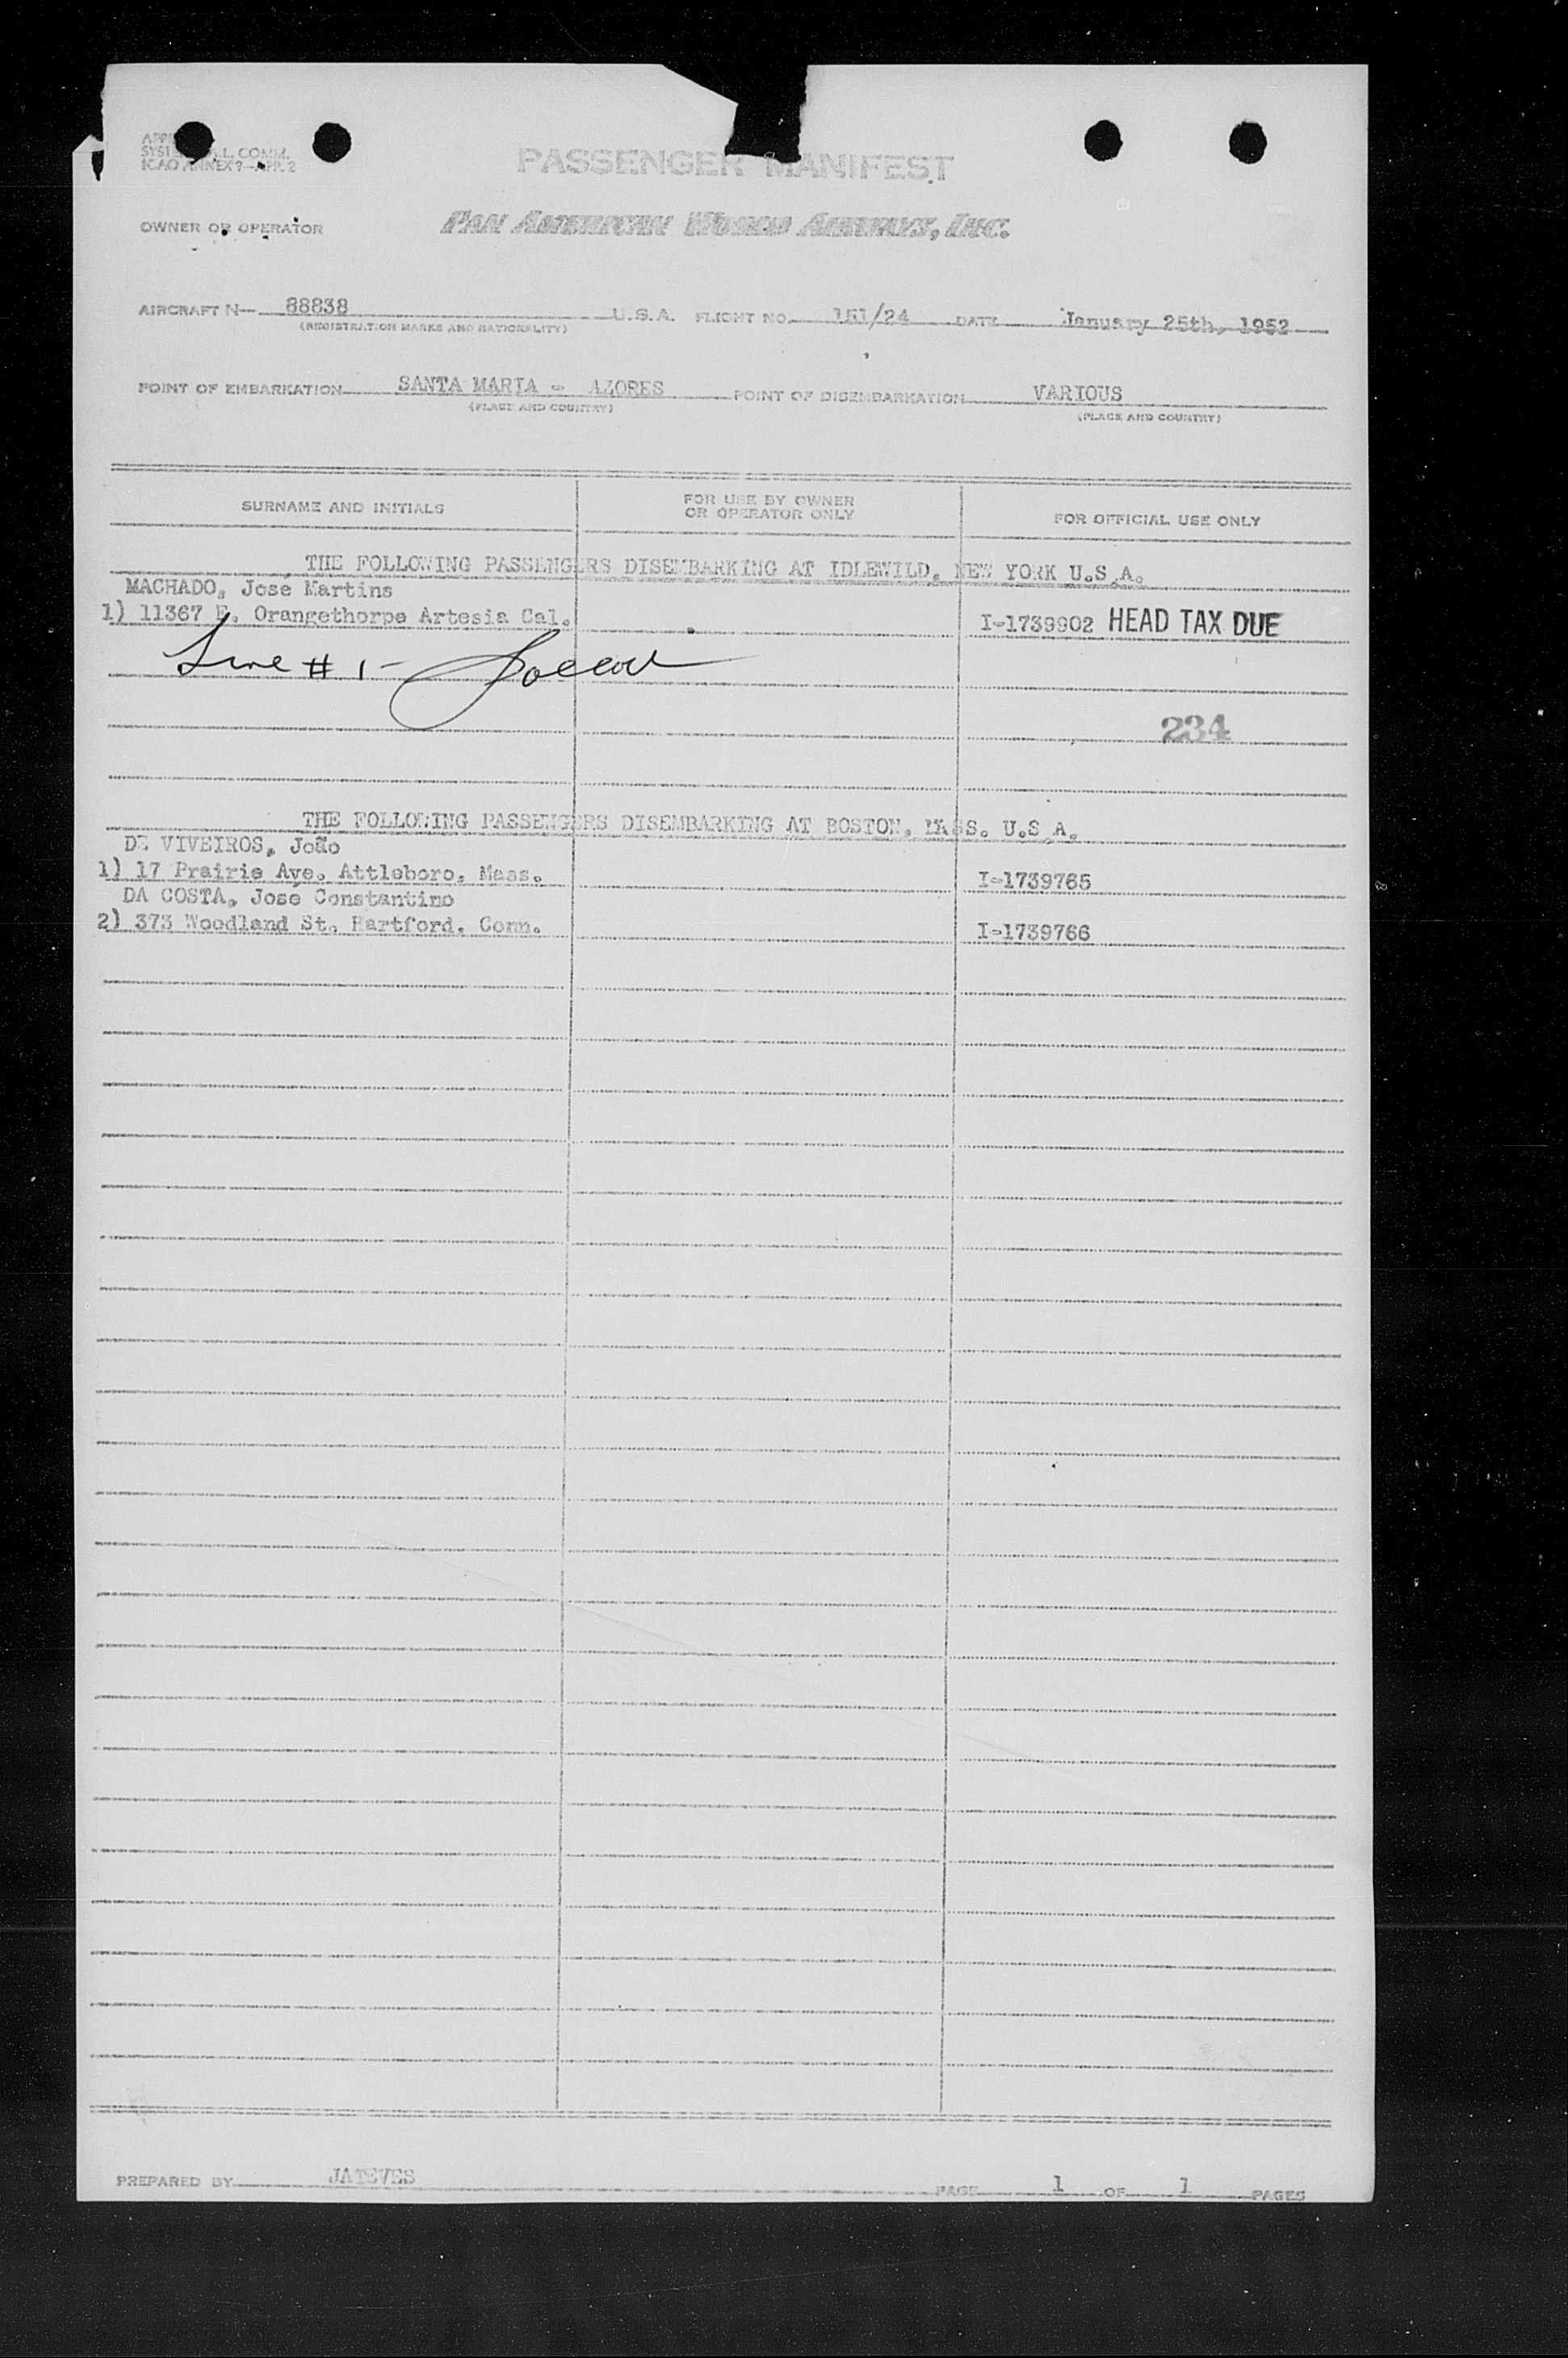 SYST ALL. COMM.
ICAO ANNEX 9—APP. 2
PASSENGER MANIFEST
OWNER OR OPERATOR PAN AMERICAN WORLD AIRWAYS, INC.
AIRCRAFT N— 88838 U.S.A. FLIGHT NO. 151/24 DATE January 25th, 1952
(REGISTRATION MARKS AND NATIONALITY)
POINT OF EMBARKATION SANTA MARIA - AZORES POINT OF DISEMBARKATION VARIOUS
(PLACE AND COUNTRY) (PLACE AND COUNTRY)
SURNAME AND INITIALS FOR USE BY OWNER OR OPERATOR ONLY FOR OFFICIAL USE ONLY
THE FOLLOWING PASSENGERS DISEMBARKING AT IDLEWILD, NEW YORK U.S.A.
MACHADO, Jose Martins
1) 11367 E. Orangethorpe Artesia Cal. I-1739902 HEAD TAX DUE
Line # 1-
234
THE FOLLOWING PASSENGERS DISEMBARKING AT BOSTON, MASS. U.S.A.
DE VIVEIROS, João
1) 17 Prairie Ave. Attleboro, Mass. I-1739765
DA COSTA, José Constantino
2) 373 Woodland St. Hartford, Conn. I-1739766
PREPARED BY JATEVES PAGE 1 OF 1 PAGES